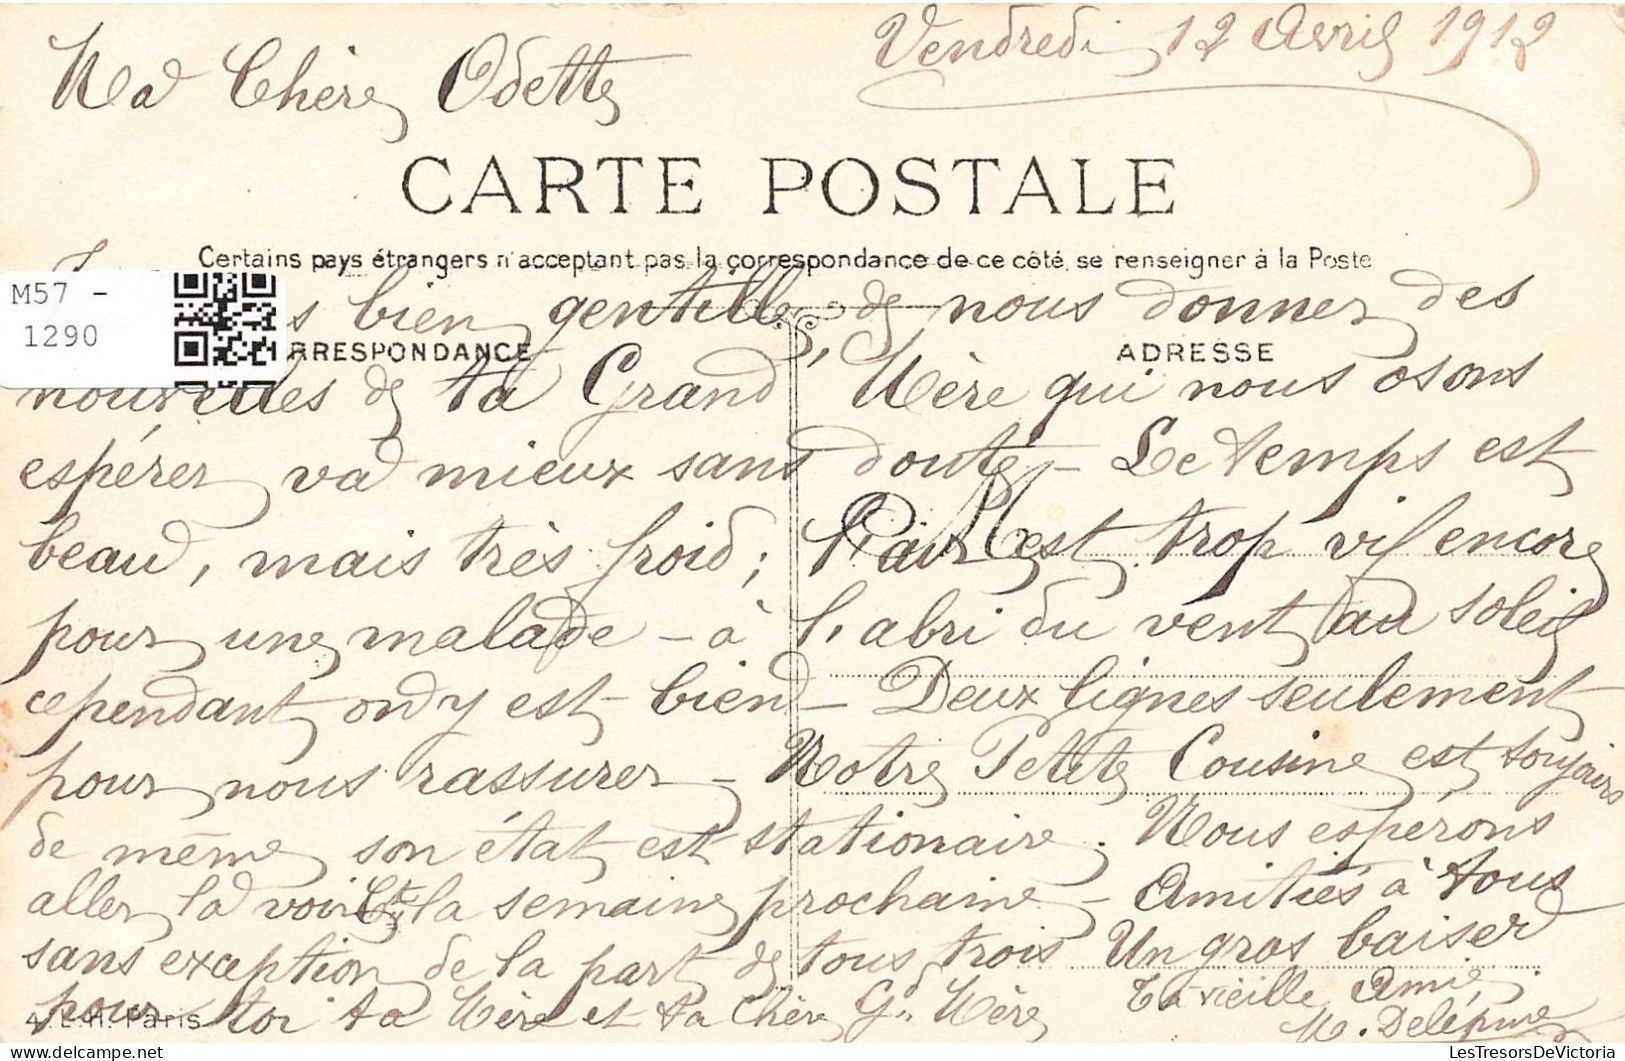 Vendredi 12 Avril 1912
Ma Chère Odette
CARTE POSTALE
Certains pays étrangers n'acceptant pas la correspondance de ce côté, se renseigner à la Poste
M57 -
1290
bien gentille de nous donner des
RRESPONDANCE
ADRESSE
nouvelles de ta Grand' Mère qui nous osons
espérer va mieux sans doute - Le temps est
beau, mais très froid; l'air est trop vif encore
pour une malade - à l'abri du vent au soleil
cependant on y est bien - Deux lignes seulement
pour nous rassurer - Notre Petite Cousine est toujours
de même son état est stationaire. Nous espérons
aller la voir la semaine prochaine - Amitiés à tous
sans exception de la part de tous trois Un gros baiser
pour toi ta Mère et ta Chère Gd Mère Ta vieille Amie
4. L. H. Paris
M. Delépine
LesTresorsDeVictoria.com